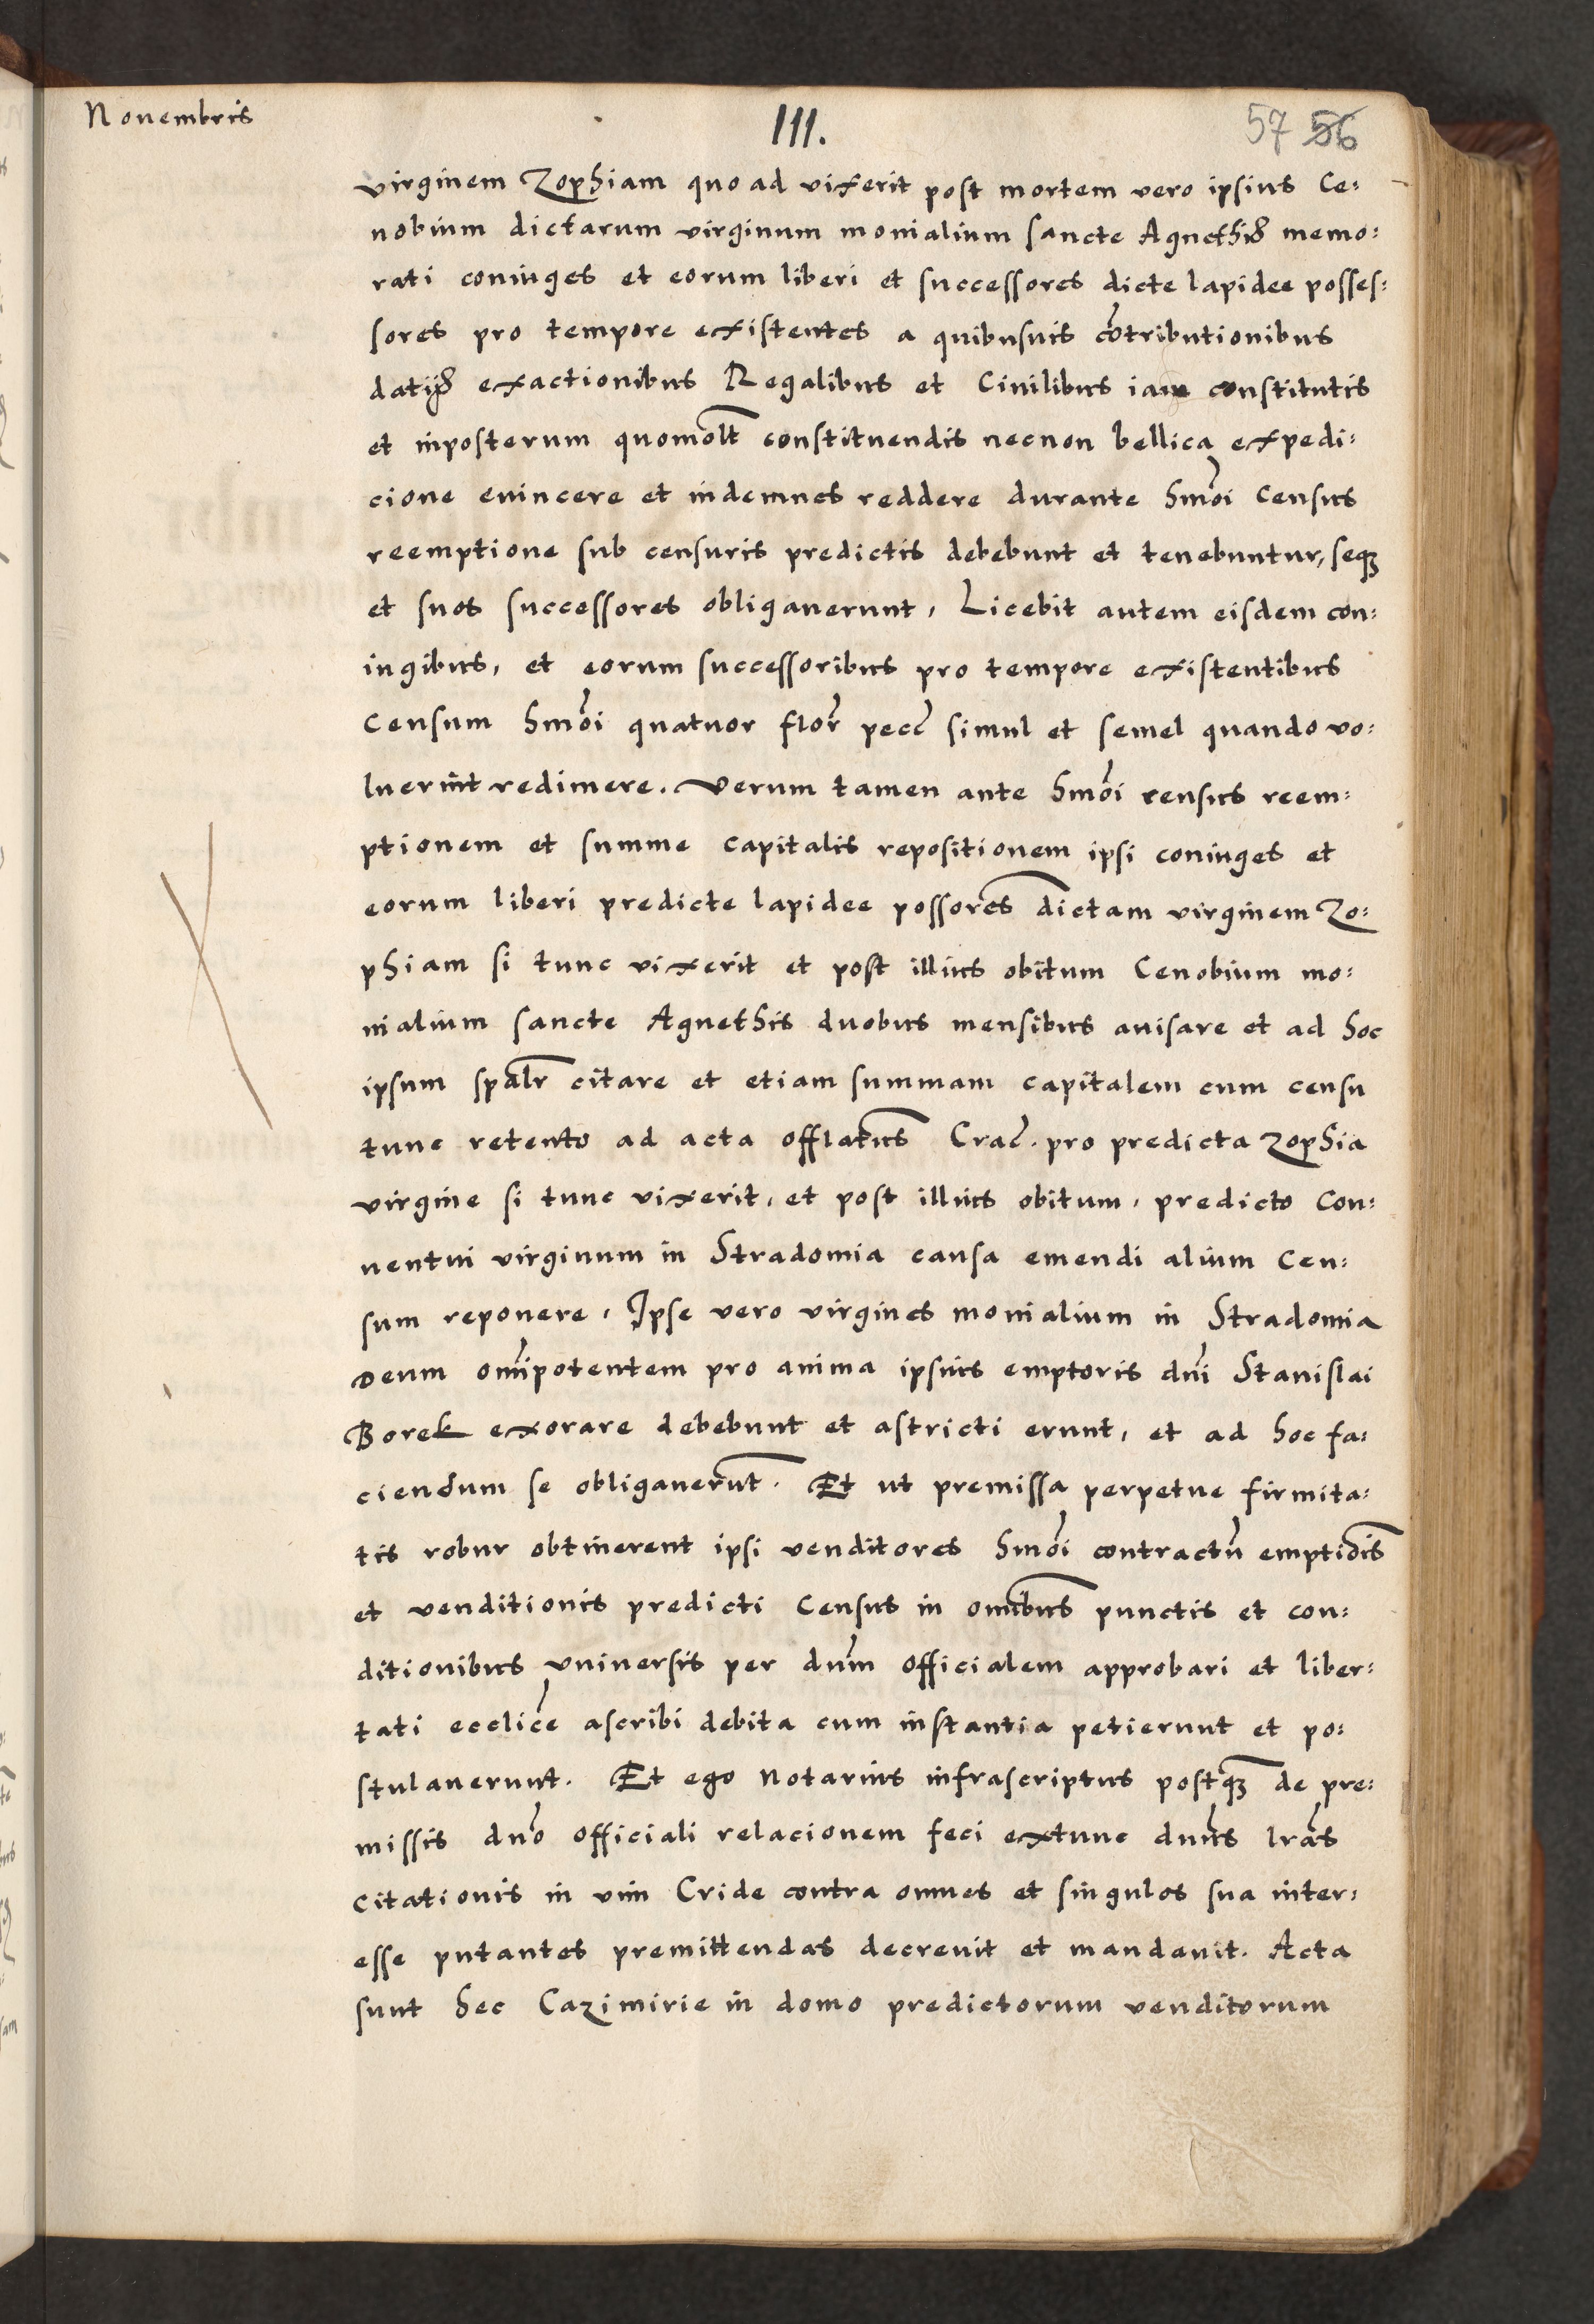 Novembris
III.
57 56
virginem Zophiam quo ad vixerit post mortem vero ipsius Ce:
nobium dictarum virginum monialium sancte Agnethis memo:
rati coniuges et eorum liberi et successores dicte lapidee posses:
sores pro tempore existentes a quibusuis cõtributionibus
datijs exactionibus Regalibus et Ciuilibus iam constitutis
et inposterum quomolt constituendis necnon bellica expedi:
cione euincere et indemnes reddere durante hmõi Census
reemptione sub censuris predictis debebunt et tenebuntur, seqꝫ
et suos successores obligauerunt, Licebit autem eisdem con:
iugibus, et eorum successoribus pro tempore existentibus
Censum hmõi quatuor flor pecc simul et semel quando vo:
luerint redimere. Verum tamen ante hmõi census reem:
ptionem et summe capitalis repositionem ipsi coniuges et
eorum liberi predicte lapidee possores dictam virginem Zo:
phiam si tunc vixerit et post illius obitum Cenobium mo:
nialium sancte Agnethis duobus mensibus auisare et ad hoc
ipsum spalr citare et etiam summam capitalem cum censu
tunc retento ad acta offlatus Crac. pro predicta Zophia
virgine si tunc vixerit, et post illius obitum, predicto Con:
uentui virginum in Stradomia causa emendi alium Cen:
sum reponere, Ipse vero virgines monialium in Stradomia
Deum omipotentem pro anima ipsius emptoris dni Stanislai
Borek exorare debebunt et astricti erunt, et ad hoc fa:
ciendum se obligauerut. Et ut premissa perpetue firmita:
tis robur obtinerent ipsi venditores hmõi contractu emptiois
et venditionis predicti Census in omibus punctis et con:
ditionibus vniuersis per dnm officialem approbari et liber:
tati ecclice ascribi debita cum instantia petierunt et po:
stulauerunt. Et ego Notarius infrascriptus postqꝫ de pre:
missis dno officiali relacionem feci extunc dnus lras
citationis in vim Cride contra omnes et singulos sua inter:
esse putantes premittendas decreuit et mandauit. Acta
sunt hec Cazimirie in domo predictorum venditorum